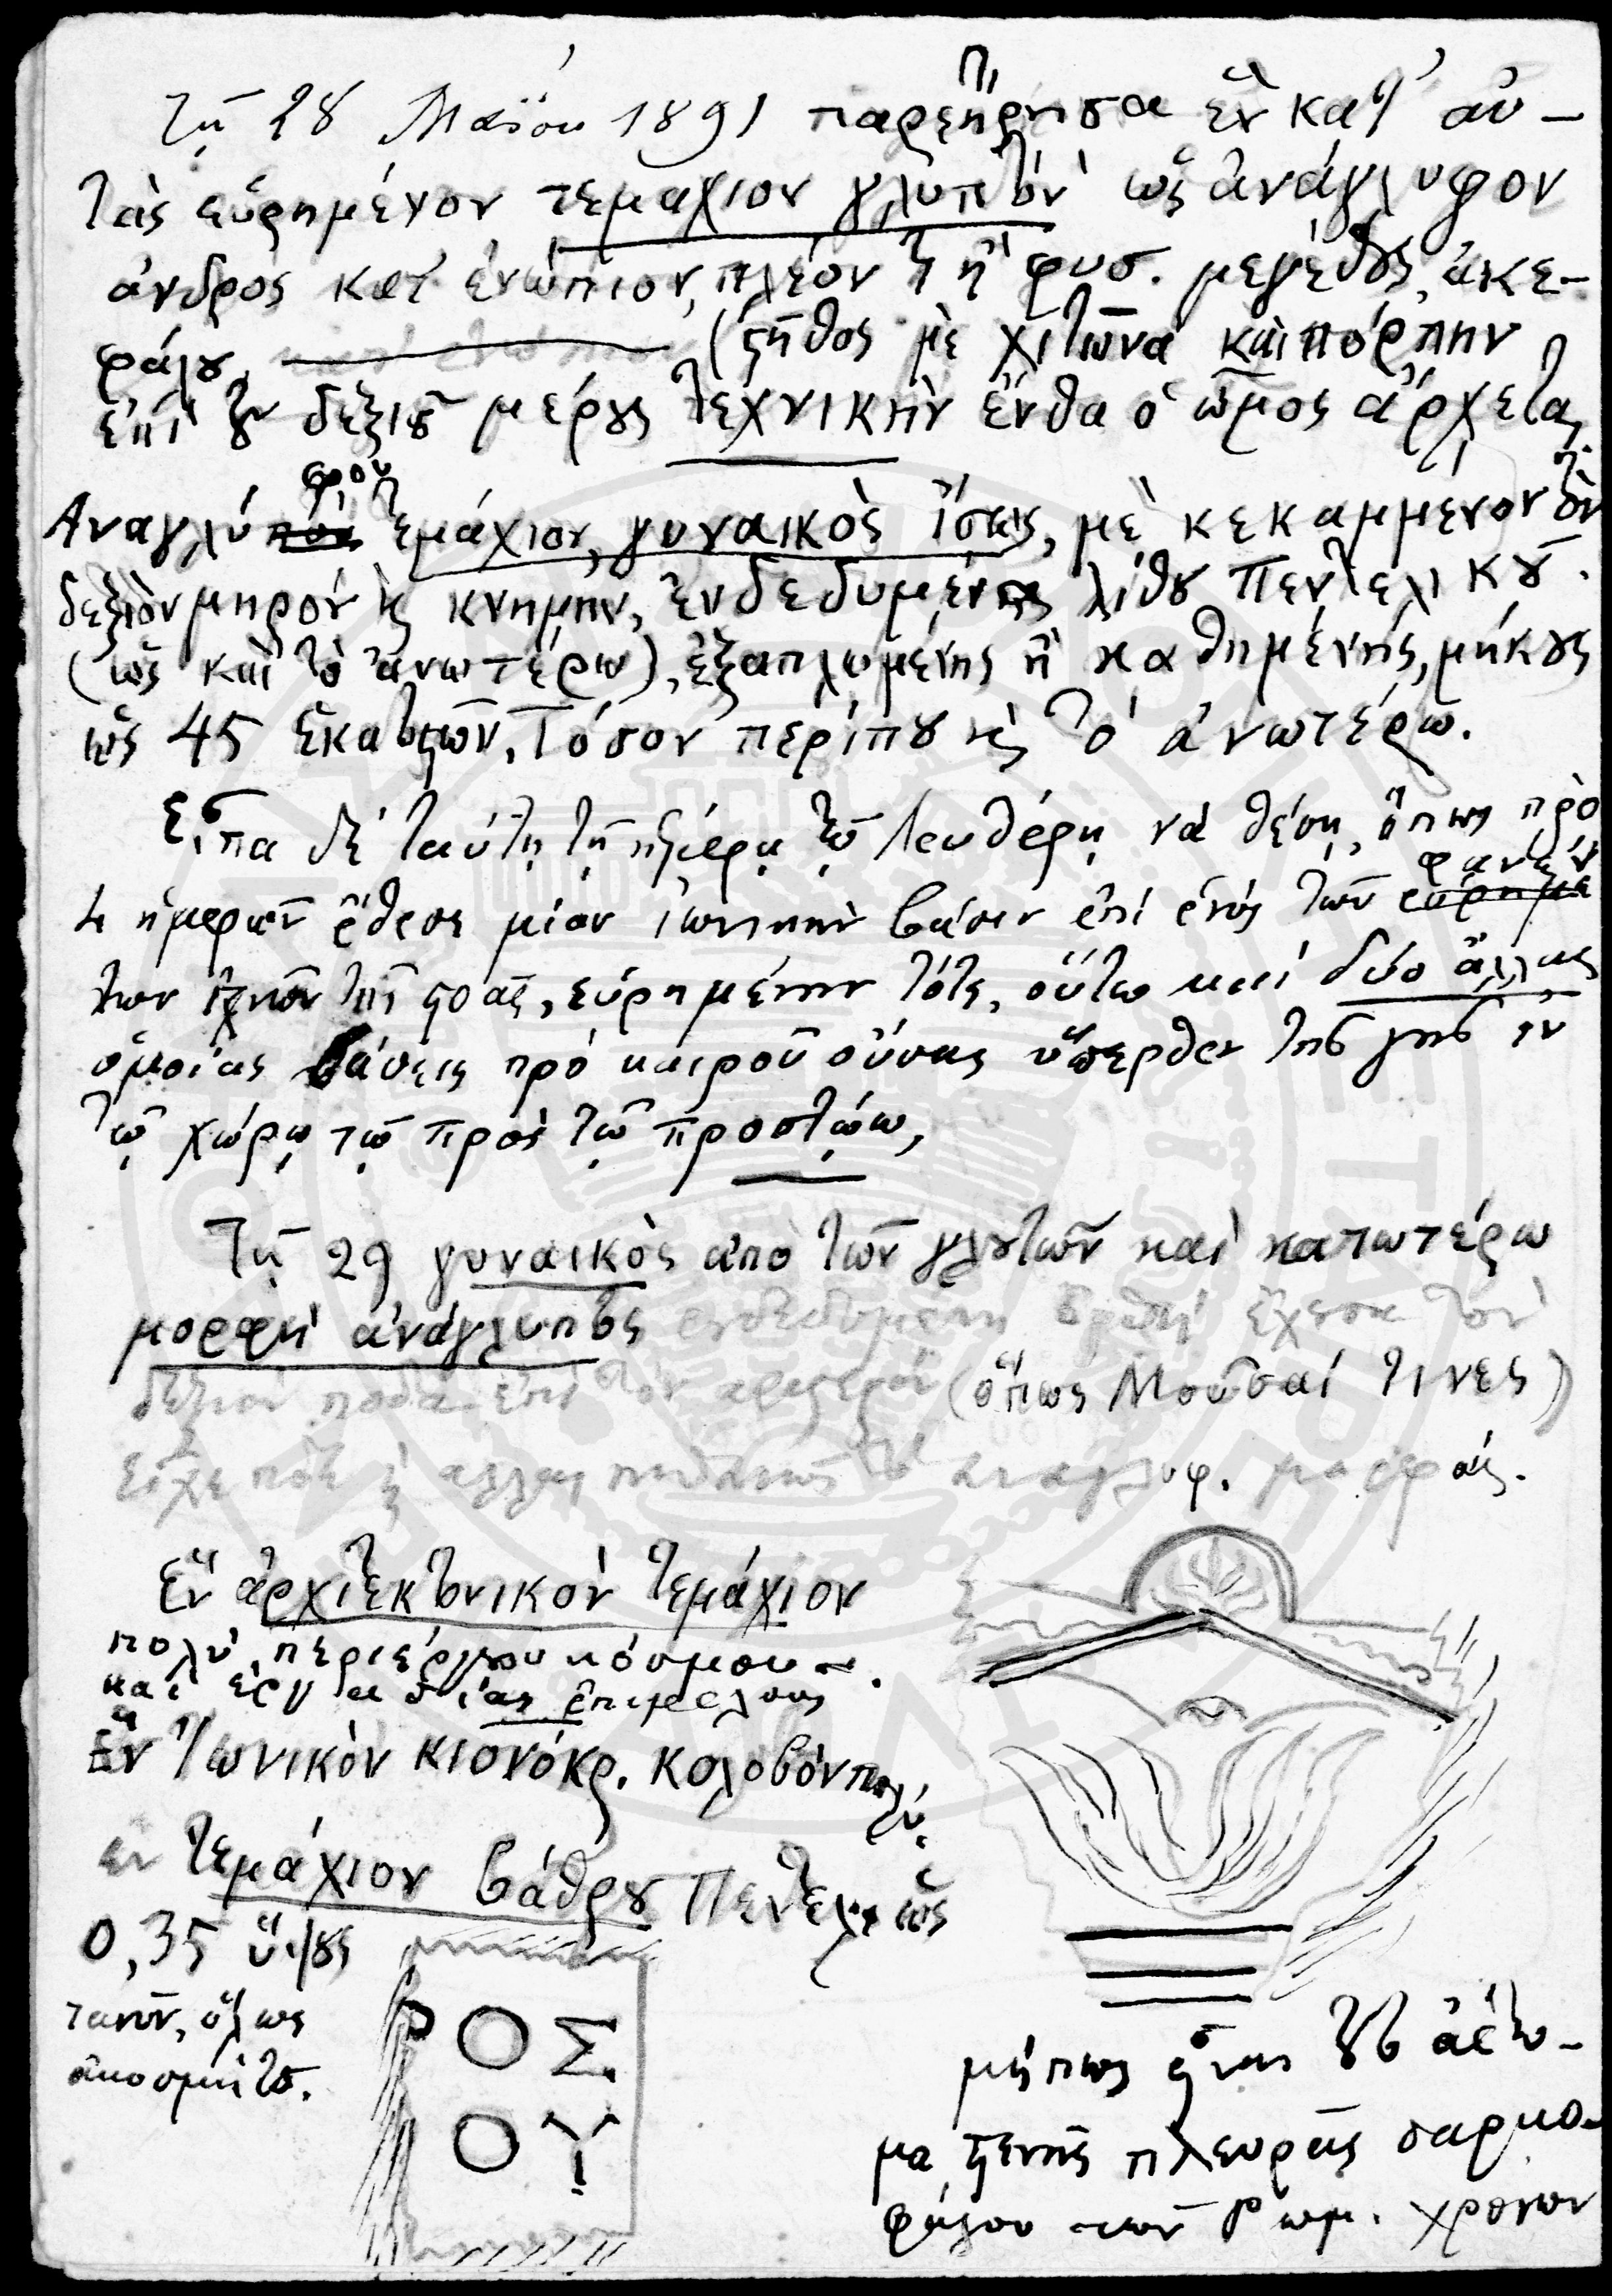 Τῇ 28 Μαΐου 1891 παρετήρησα ἓν κατ' αὐ-
τὰς εὑρημένον τεμάχιον γλυπτὸν ὡς ἀνάγλυφον
ἀνδρὸς κατ' ἐνώπιον, πλέον ἢ φυσ. μεγέθους, ἀκε-
φάλου, (στῆθος μὲ χιτῶνα καὶ πόρπην
ἐπὶ τοῦ δεξιοῦ μέρους τεχνικὴν ἔνθα ὁ ὦμος ἄρχεται.
Ἀναγλύφου τεμάχιον, γυναικὸς ἴσως, μὲ κεκαμμένον τὸν
δεξιὸν μηρὸν κ̀ κνήμην, ἐνδεδυμένης λίθου Πεντελικοῦ.
(ὡς καὶ τὸ ἀνωτέρω), ἐξαπλωμένης ἢ καθημένης, μήκους
ὡς 45 ἑκατοστῶν, Τόσον περίπου κ̀ τὸ ἀνωτέρω.
Εἶπα δὲ ταύτῃ τῇ ἡμέρᾳ τῷ Λευθέρῃ νὰ θέσῃ, ὅπως πρὸ
4 ἡμερῶν ἔθεσε μίαν ἰωνικὴν βάσιν ἐπὶ ἑνὸς τῶν φανέν
των ἰχνῶν τῆς στοᾶς, εὑρημένην τότε, οὕτω καὶ δύο ἄλλας
ὁμοίας βάσεις πρὸ καιροῦ οὔσας ὕπερθεν τῆς γῆς ἐν
τῷ χώρῳ τῷ πρὸς τῷ προστῴω,
Τῇ 29 γυναικὸς ἀπὸ τῶν γλουτῶν καὶ κατωτέρω
μορφὴ ἀνάγλυπτος ἐνδεδυμένη ὀρθὴ ἔχουσα τὸν
δεξιὸν πόδα ἐπὶ τὸν ἀριστερόν (ὅπως Μοῦσαί τινες)
εἶχέ ποτε κ̀ ἄλλας πιθανῶς τὸ ἀνάγλυφ. μορφάς.
Ἓν ἀρχιτεκτονικὸν τεμάχιον
πολὺ περιέργου κόσμου
καὶ ἐργασίας ἐπιμελοῦς
Ἓν Ἰωνικὸν κιονόκρ. κολοβὸν πολύ.
ἓν τεμάχιον βάθρου Πεντελ. ὡς
0,35 ὕψους
τανῦν, ὅλως
ἀκοσμήτο.
ΡΟΣ
ΟΥ
μήπως εἶναι τοῦτο ἀέτω-
μα στενῆς πλευρᾶς σαρκο-
φάγου τῶν Ῥωμ. χρόνων